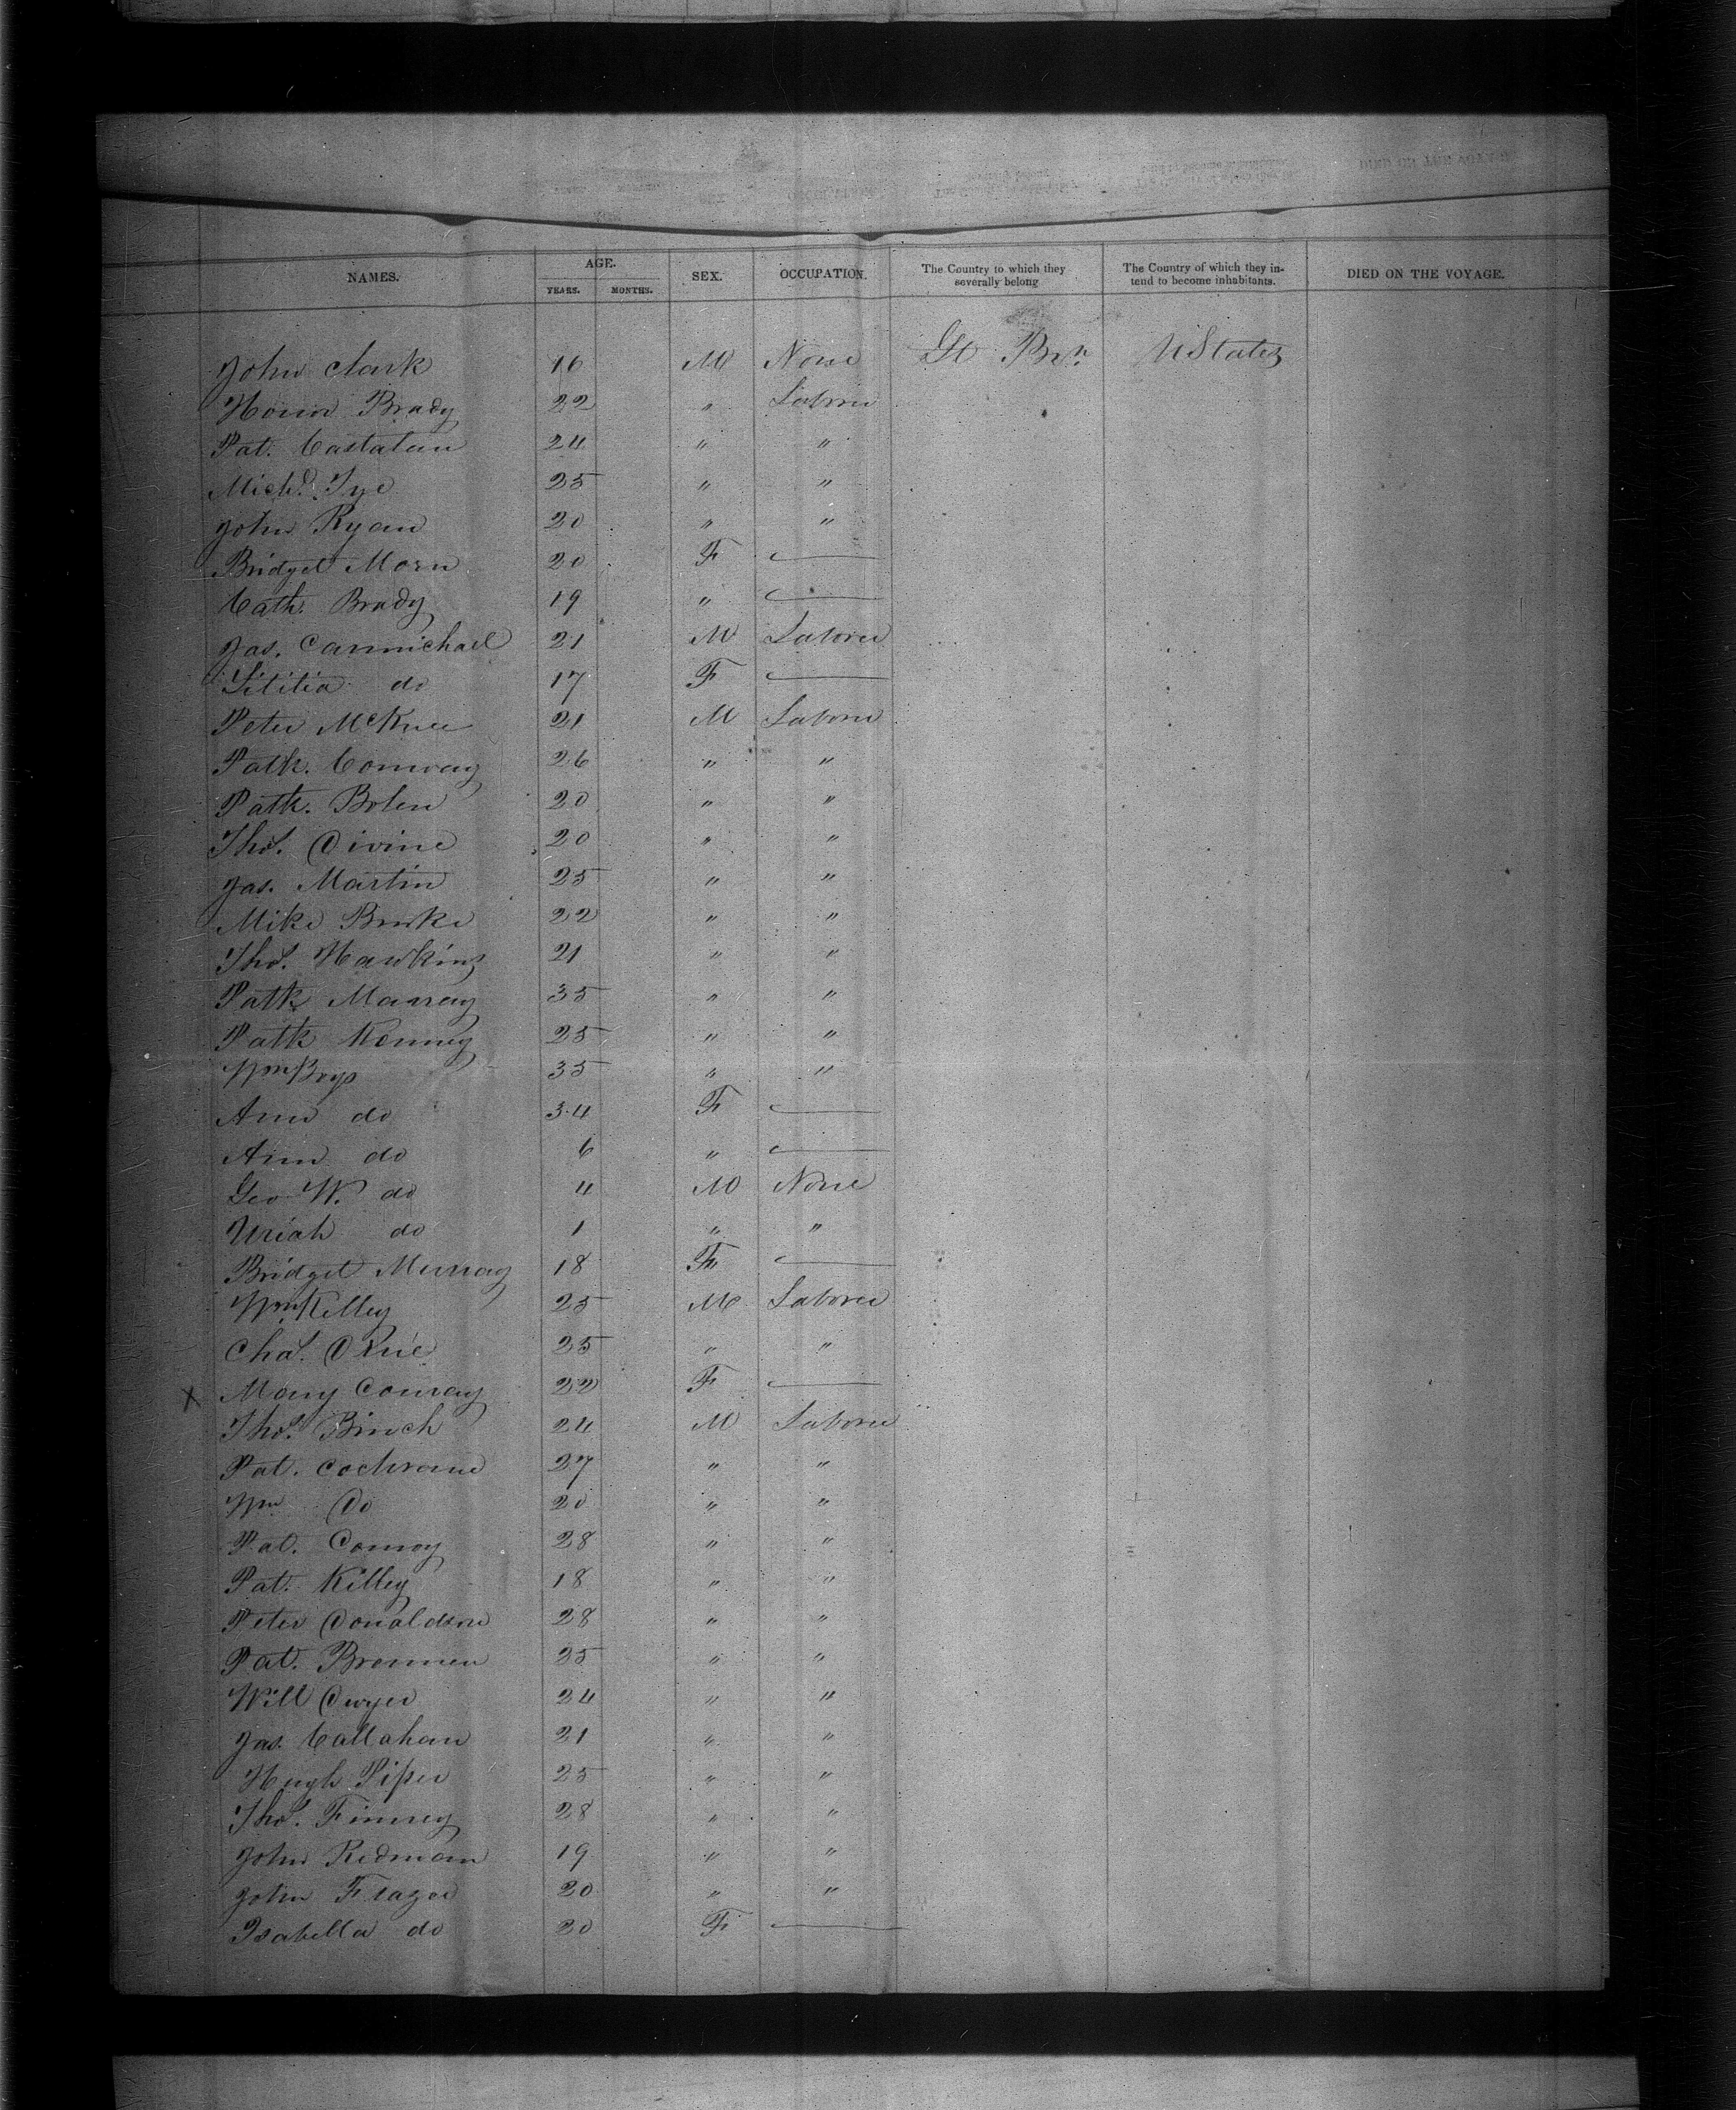 NAMES. AGE. SEX. OCCUPATION. The Country to which they severally belong The Country of which they intend to become inhabitants. DIED ON THE VOYAGE.
YEARS. MONTHS.
John Clark 16 M None Gt Brn. UStates
Brady 22 " Laborer
Pat. 24 " "
Michl. Tye 25 " "
John Ryan 20 " "
Bridget Morn 20 F —
Cath. Brady 19 " —
Jas. Carmichael 21 M Laborer
Lititia do 17 F —
Peter McKnee 21 M Laborer
Patk. Conway 26 " "
Patk. Bolen 20 " "
Thos. Divine 20 " "
Jas. Martin 25 " "
Mike Burke 22 " "
Thos. Hawkins 21 " "
Patk Murray 35 " "
Patk Kenney 25 " "
Wm Boys 35 " "
Ann do 34 F —
Ann do 6 " —
Geo W. do 4 M None
Uriah do 1 " "
Bridget Murray 18 F —
Wm Kelley 25 M Laborer
Chas. 25 " "
X Mary Conray 22 F —
Thos. Binch 24 M Laborer
Pat. Cochrane 27 " "
Wm Do 20 " "
Pat. Conroy 28 " "
Pat. Killey 18 " "
Peter Donaldson 28 " "
Pat. Brennen 25 " "
Will Dwyer 24 " "
Jas. Callahan 21 " "
Hugh Piper 25 " "
Thos. Finney 28 " "
John Redman 19 " "
John Frazer 20 " "
Isabella do 20 F —